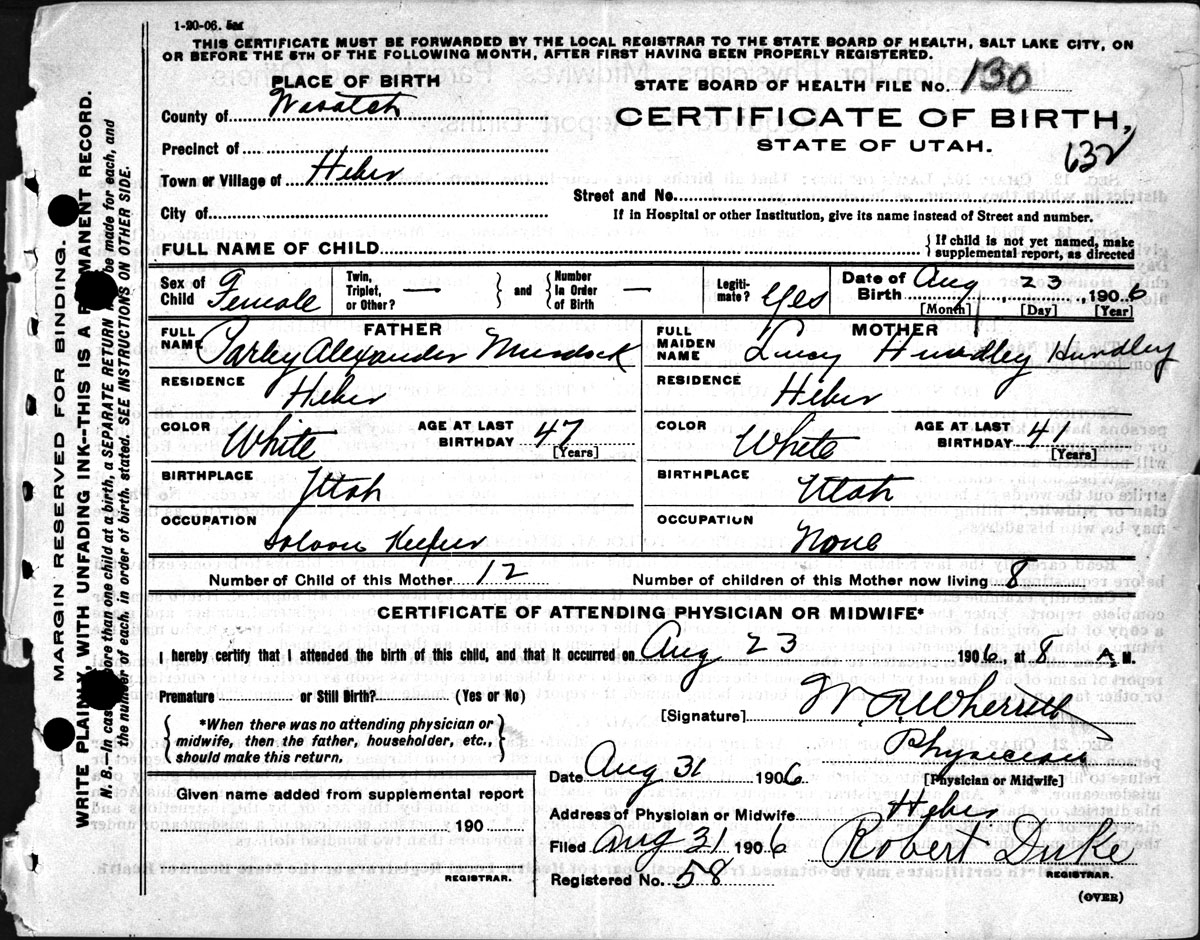 1-20-06.
THIS CERTIFICATE MUST BE FORWARDED BY THE LOCAL REGISTRAR TO THE STATE BOARD OF HEALTH, SALT LAKE CITY, ON
OR BEFORE THE 5TH OF THE FOLLOWING MONTH, AFTER FIRST HAVING BEEN PROPERLY REGISTERED.
PLACE OF BIRTH
County of Wasatch
Precinct of
Town or Village of Heber
City of
STATE BOARD OF HEALTH FILE No. 130
CERTIFICATE OF BIRTH,
STATE OF UTAH.
632
Street and No.
If in Hospital or other Institution, give its name instead of Street and number.
FULL NAME OF CHILD
{ If child is not yet named, make
supplemental report, as directed
Sex of Child Female
Twin, Triplet, or Other? —
} and {
Number In Order of Birth —
Legiti-mate? Yes
Date of Birth Aug 23 1906
[Month] [Day] [Year]
FATHER
FULL NAME Parley Alexander Murdock
RESIDENCE
Heber
COLOR White
AGE AT LAST BIRTHDAY 47
[Years]
BIRTHPLACE
Utah
OCCUPATION
Saloon Keeper
MOTHER
FULL MAIDEN NAME Hundley Hundley
RESIDENCE
Heber
COLOR White
AGE AT LAST BIRTHDAY 41
[Years]
BIRTHPLACE
Utah
OCCUPATION
None
Number of Child of this Mother 12 Number of children of this Mother now living 8
CERTIFICATE OF ATTENDING PHYSICIAN OR MIDWIFE*
I hereby certify that I attended the birth of this child, and that it occurred on Aug 23 1906, at 8 A M.
Premature or Still Birth? (Yes or No)
{ *When there was no attending physician or
midwife, then the father, householder, etc.,
should make this return. }
Given name added from supplemental report
190
REGISTRAR.
[Signature] W R Wherritt
Physician
[Physician or Midwife]
Date Aug 31 1906
Address of Physician or Midwife Heber
Filed Aug 31 1906 Robert Duke
REGISTRAR.
Registered No. 58
(OVER)
MARGIN RESERVED FOR BINDING.
WRITE PLAINLY, WITH UNFADING INK--THIS IS A PERMANENT RECORD.
N. B.—In case more than one child at a birth, a SEPARATE RETURN must be made for each, and
the number of each, in order of birth stated. SEE INSTRUCTIONS ON OTHER SIDE.